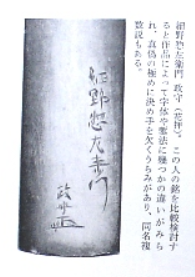 細野惣左衛門 政守（花押）。この人の銘を比較検討す
ると作品によって字体や鏨法に幾つかの違いがみら
れ、真偽の極めに決め手を欠くうらみがあり、同名複
数説もある。
細野惣左衛門
政守